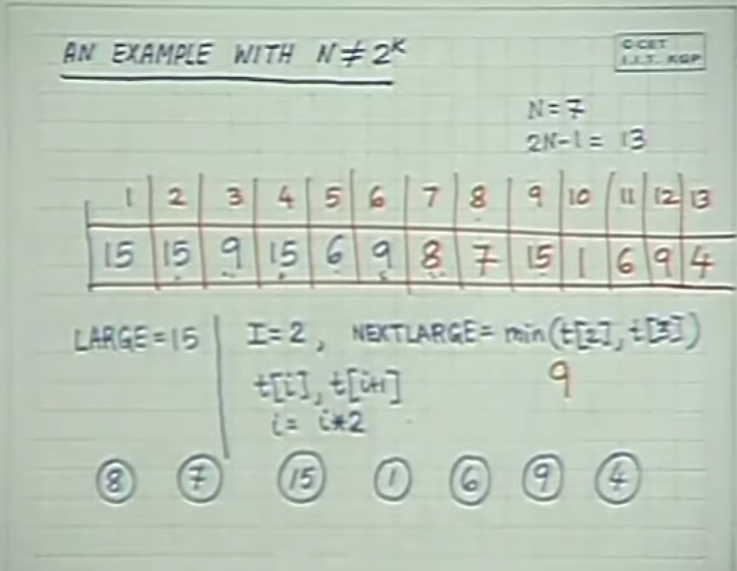 AN EXAMPLE WITH N ≠ 2^K
© CET
I.I.T. KGP
N = 7
2N-1 = 13
1 2 3 4 5 6 7 8 9 10 11 12 13
15 15 9 15 6 9 8 7 15 1 6 9 4
LARGE = 15
I=2, NEXTLARGE = min(t[2], t[3])
t[i], t[i+1]
9
i = i*2
8 7 15 1 6 9 4